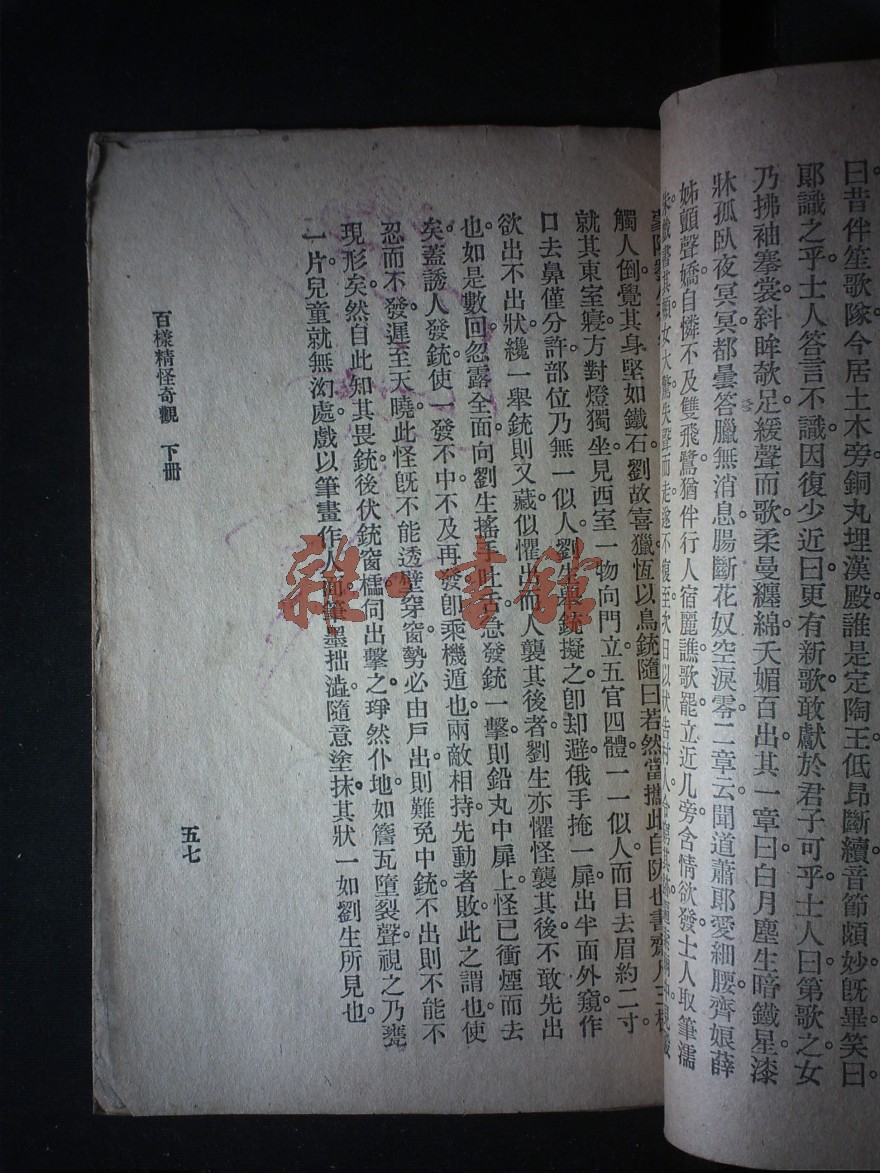 曰。昔伴笙歌隊。今居土木旁。銅丸埋漢殿。誰是定陶王。低昂斷續。音節頗妙。旣畢。笑曰。
郞識之乎。士人答言不識。因復少近曰。更有新歌。敢獻於君子可乎。士人曰。第歌之。女
乃拂袖搴裳。斜眸欹足。緩聲而歌。柔曼纏綿。夭媚百出。其一章曰。白月塵生暗鐵星。漆
牀孤臥夜冥冥。都曇答臘無消息。腸斷花奴空淚零。二章云。聞道蕭郞愛細腰。齊娘薛
姊顫聲嬌。自憐不及雙飛鷺。猶伴行人宿麗譙。歌罷。立近几旁。含情欲發。士人取筆濡
女大驚失聲而走。遂不復至。次日以狀告村人
觸人倒。覺其身堅如鐵石。劉故喜獵。恆以鳥銃隨。曰若然。當攜此自防也。書齋凡三
就其東室寢。方對燈獨坐。見西室一物向門立。五官四體。一一似人。而目去眉約二寸。
口去鼻僅分許。部位乃無一似人。劉生舉銃擬之。卽却避。俄手掩一扉。出半面外窺。作
欲出不出狀。纔一舉銃則又藏。似懼出而人襲其後者。劉生亦懼怪襲其後。不敢先出
也。如是數回。忽露全面。向劉生搖手吐舌。急發銃一擊。則鉛丸中扉上。怪已衝煙而去
矣。蓋誘人發銃。使一發不中。不及再發。卽乘機遁也。兩敵相持。先動者敗。此之謂也。使
忍而不發。遲至天曉。此怪旣不能透壁穿窗。勢必由戶出。則難免中銃。不出則不能不
現形矣。然自此知其畏銃。後伏銃窗櫺。伺出擊之。琤然仆地。如簷瓦墮裂聲。視之。乃甕
一片。兒童就無泑處戲以筆畫作人面。筆墨拙澁。隨意塗抹。其狀一如劉生所見也。
百樣精怪奇觀　下册
五七
雜·書館